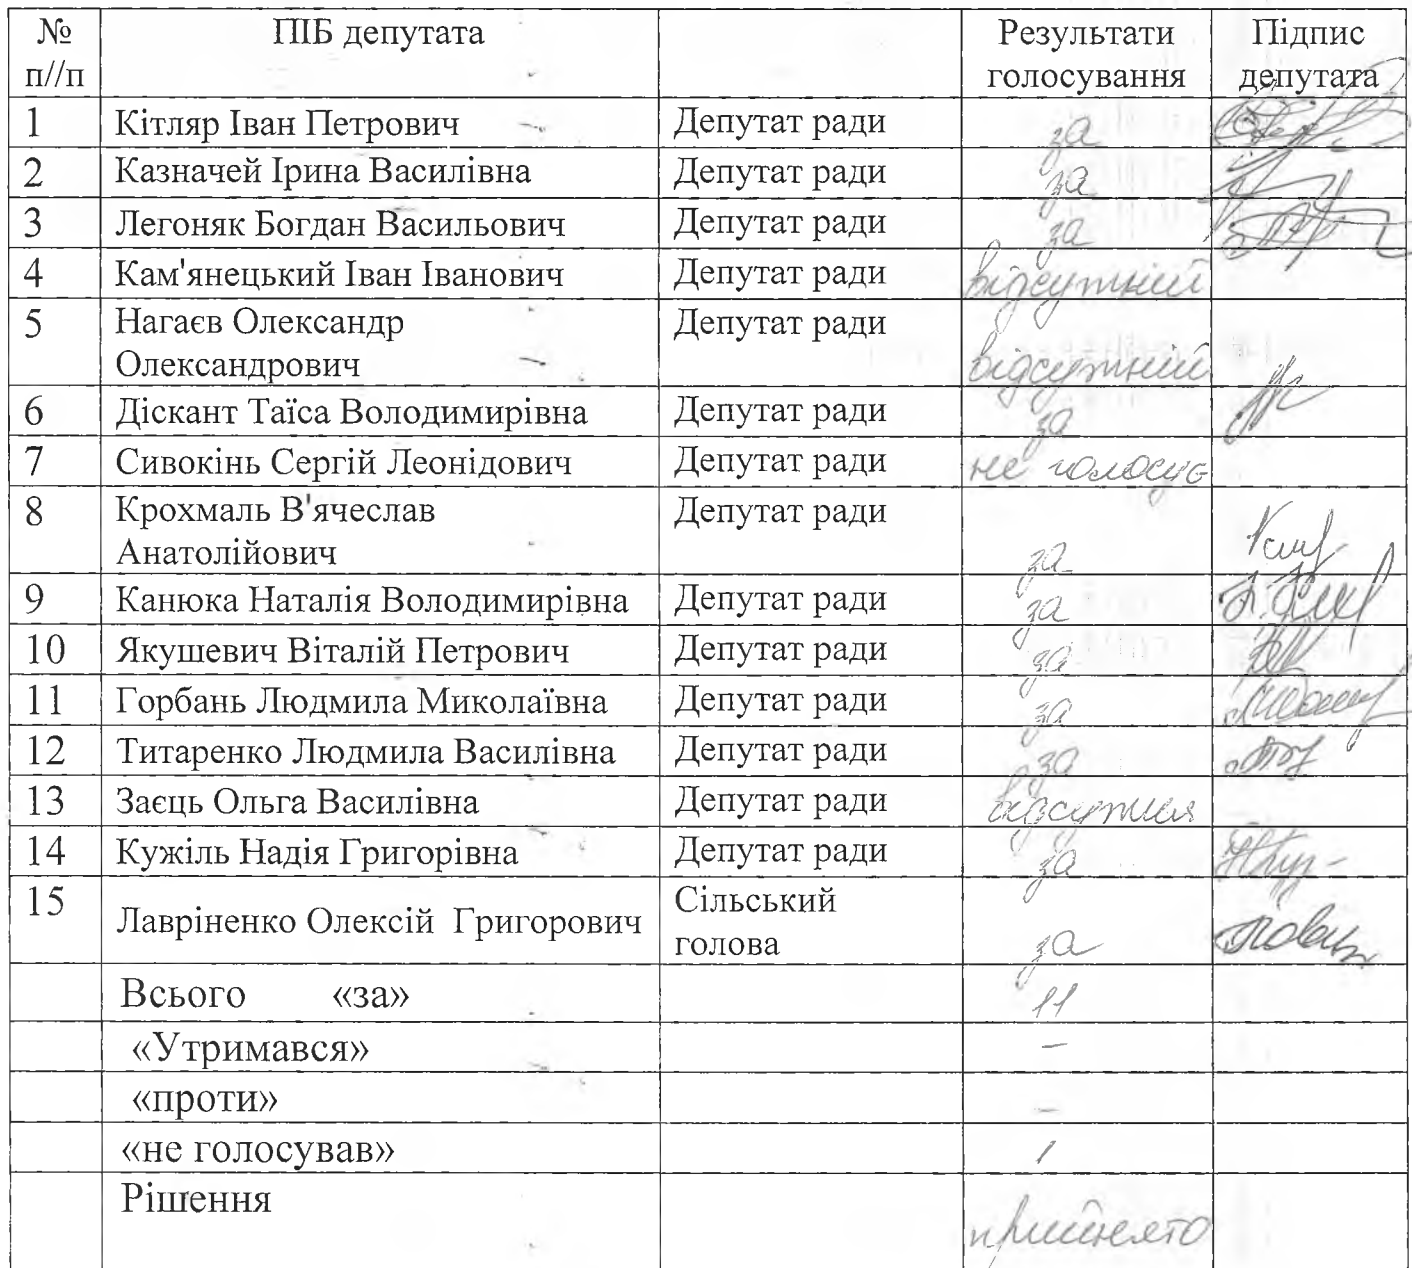 № ПІБ депутата Результати Підпис
п//п голосування депутата
1 Кітляр Іван Петрович Депутат ради за
2 Казначей Ірина Василівна Депутат ради за
3 Легоняк Богдан Васильович Депутат ради за
4 Кам'янецький Іван Іванович Депутат ради відсутній
5 Нагаєв Олександр Депутат ради
Олександрович відсутній
6 Діскант Таїса Володимирівна Депутат ради за
7 Сивокінь Сергій Леонідович Депутат ради не голосує
8 Крохмаль В'ячеслав Депутат ради
Анатолійович за
9 Канюка Наталія Володимирівна Депутат ради за
10 Якушевич Віталій Петрович Депутат ради за
11 Горбань Людмила Миколаївна Депутат ради за
12 Титаренко Людмила Василівна Депутат ради за
13 Заєць Ольга Василівна Депутат ради відсутня
14 Кужіль Надія Григорівна Депутат ради за
15 Лавріненко Олексій Григорович Сільський
голова за
Всього «за» 11
«Утримався» -
«проти» -
«не голосував» 1
Рішення прийнято